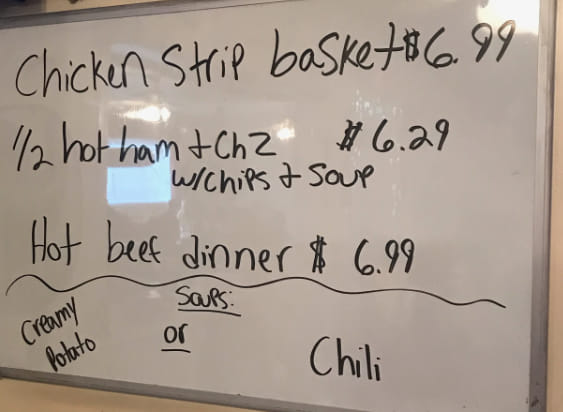 Chicken Strip basket $6.99
1/2 hot ham + Ch Z $ 6.29
w/chips + soup
Hot beef dinner $ 6.99
Soups:
Creamy Potato or Chili